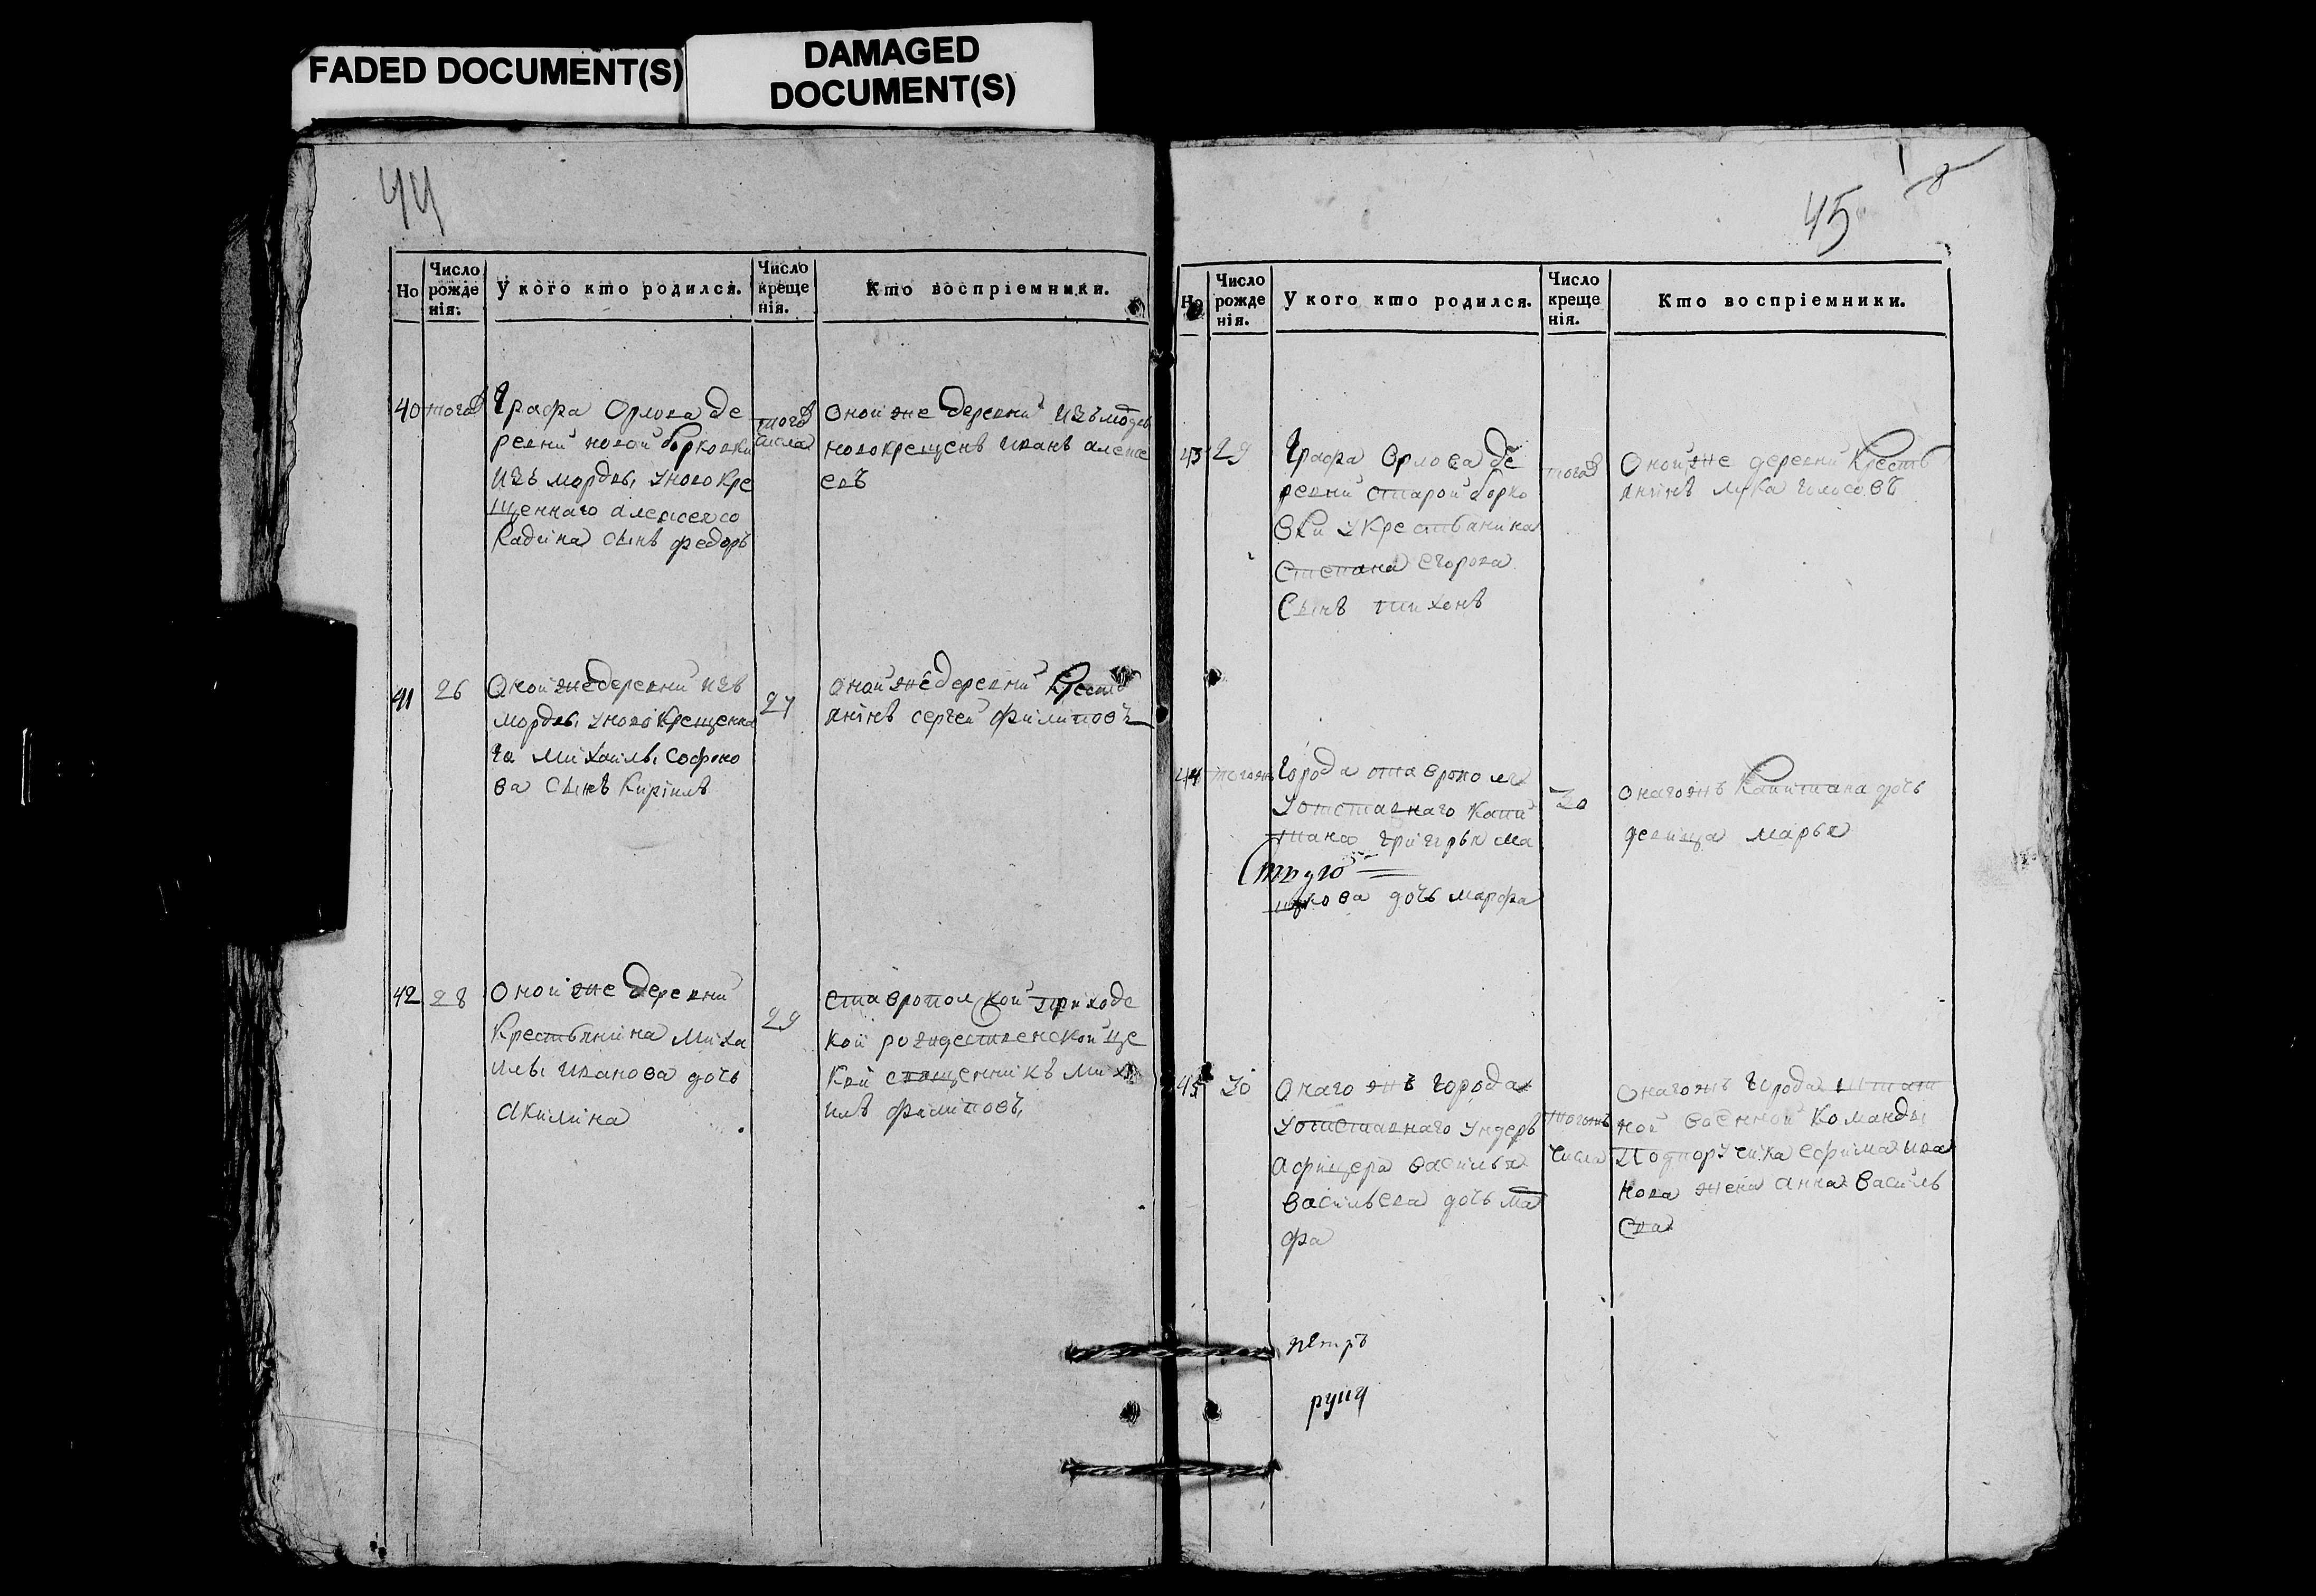 FADED DOCUMENT(S)
DAMAGED
DOCUMENT(S)
44
Но
Число
рожде
нія.
У кого кто родился.
Число
креще
нія.
Кто воспріемники.
40 того
Графа Орлова де
ревни новой борковки
изъ мордвы уновокре
щеннаго алексея со
кадина сынъ федоръ
того
числа
Оной же деревни изъ мордвы
новокрещенъ иванъ алексе
евъ
41 26
Оной же деревни изъ
мордвы уновокрещенна
го михаилы софоно
ва сынъ кирилъ
27
оной же деревни крестъ
янинъ сергей филиповъ
42 28
Оной же деревни
крестьянина миха
илы иванова дочь
акилина
29
ставропол кой приходс
кой рождественской це
кви священникъ миха
илъ филиповъ
45
8
Но
Число
рожде
нія.
У кого кто родился.
Число
креще
нія.
Кто воспріемники.
43 29
Графа Орлова де
ревни старой борко
вки укрестьянина
степана егорова
Сынъ тихонъ
того
Оной же деревни кресть
янинъ лука
44 тогожъ
города ставрополя
уотставнаго капи
тана григорья ма
кова дочь марфа
30
онагожъ капитана дочь
девица марья
45 30
Онаго жъ города
уотставнаго ундеръ
афицера василья
васильева дочь ма
фа
тогожъ
числа
Онагожъ города штат
ной военной команды
подпорутчика ефима ива
нова жена анна василь
ева
петръ
рущ